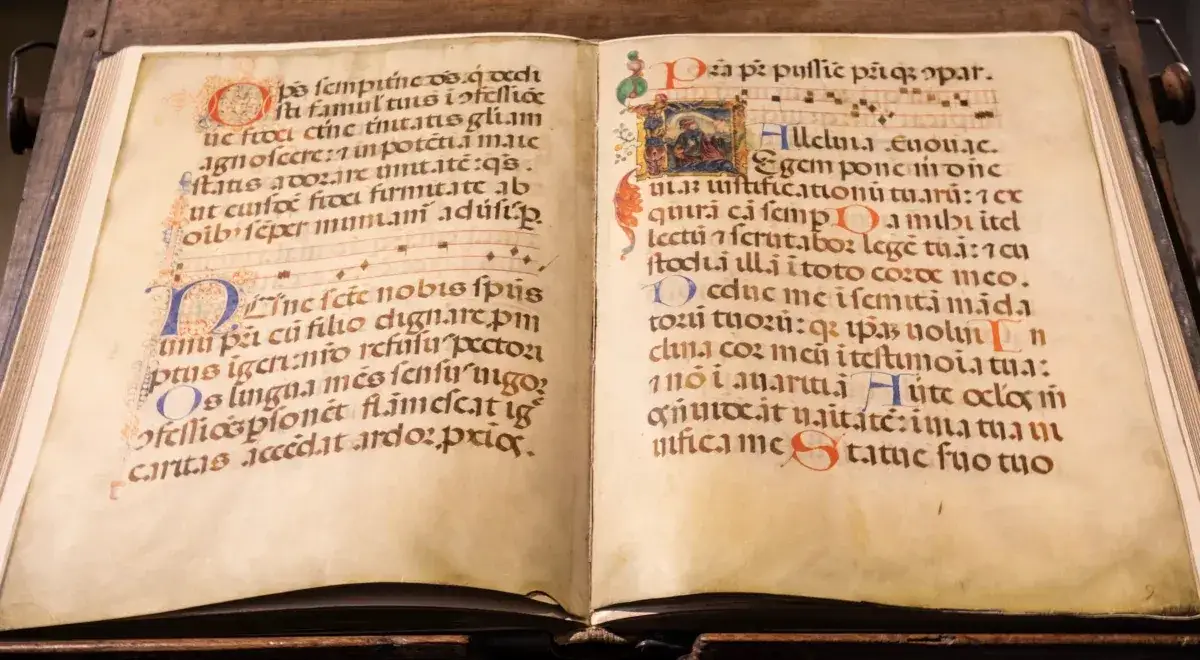 Op̄s sempit̄ne d̄s. q̄ dedi
sti famul tuis i ꝯfessiōe
ue fidei et̄ne t̄nitatis gl̄iam
agnoscere: ⁊ in potētia maie
statis adorare unitatē: q̄s.
ut eiusdē fidei firmitate ab
oīb; sēper muniam̄ aduſis. p.
Nūc sc̄te nobis sp̄us
unū pr̄i cū filio dignare p̄m
ptus igeri: nr̄o refusuꝰ pectori
Os lingua mēs sensuꝰ uigor
ꝯfessiōē ꝑsonēt flāmescat igē
caritas accēdat ardor ꝓxīos.
Pr̄a pr̄
Alleluia. Euouae.
Legem pone m̄ dn̄e
uiaȝ iustificationū tuarū: ⁊ ex
quirā eā semꝑ Da mihi ītel
lectū ⁊ scrutabor legē tuā: ⁊ cu
stodiā illā ī toto corde meo.
Deduc me ī semitā mādā
torū tuorū: qꝛ ip̄aȝ uolui In
clina cor meū ī testimōia tua:
⁊ nō ī auaritiā Auite oclōs m̄
os̄ ne uideāt uaītatē: ī uia tua ui
uifica me Statue suo tuo